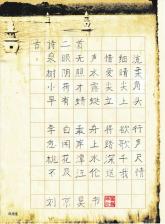 古诗二首
泉眼无声惜细流
树阴照水爱晴柔
小荷才露尖尖角
早有蜻蜓立上头
李白乘舟将欲行
忽闻岸上踏歌声
桃花潭水深千尺
不及汪伦送我情